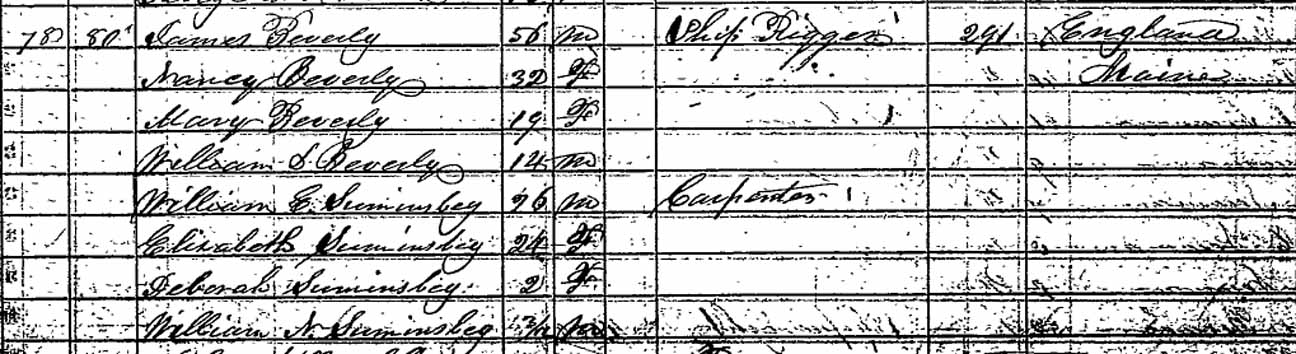 James Beverly 56 m Ship Rigger England
Nancy Beverly 32 F Maine
Mary Beverly 19 F
William S. Beverly 14 m
William E. Suminsbey 26 m Carpenter
Elizabeth Suminsbey 24 F
Deborah Suminsbey 2 F
William N. Suminsbey m